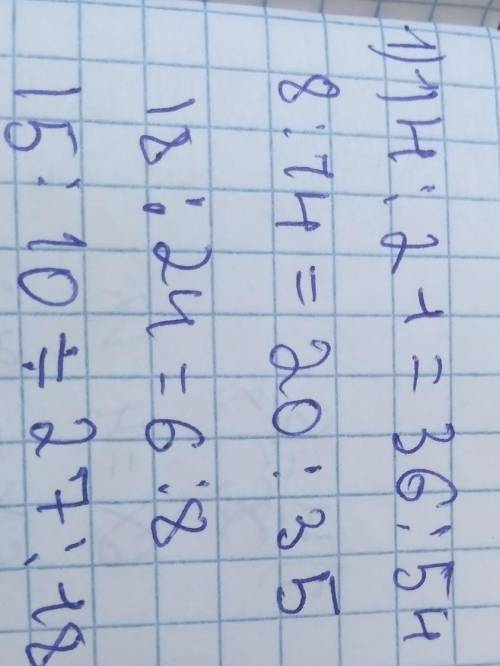 1) 14 : 21 = 36 : 54
8 : 14 = 20 : 35
18 : 24 = 6 : 8
15 : 10 = 27 : 18